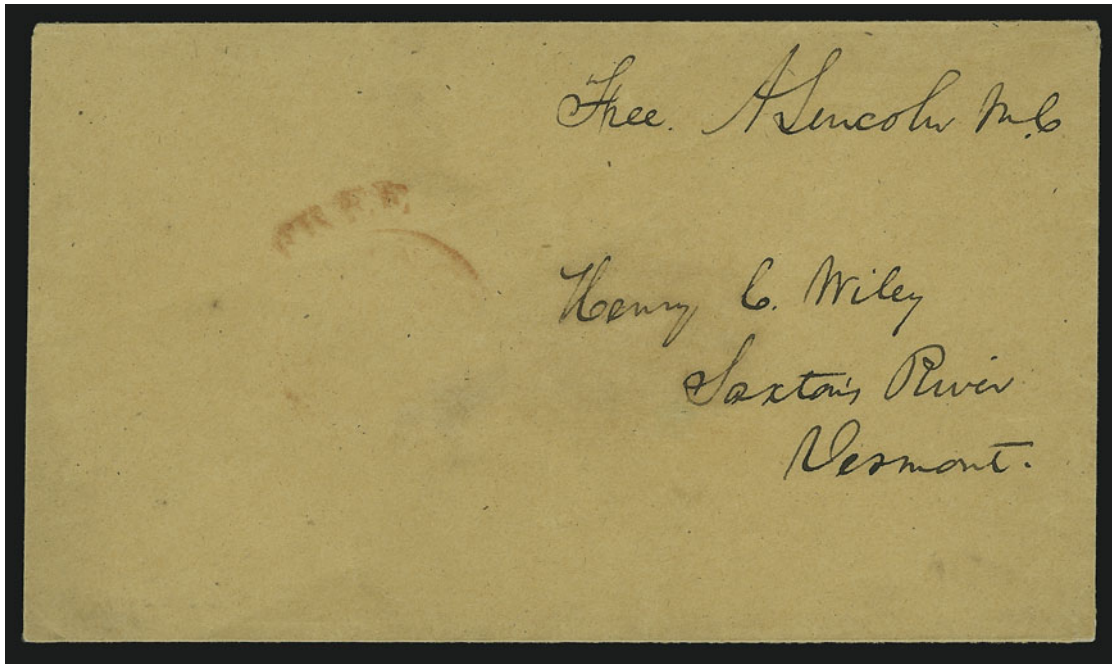 Free. A Lincoln M.C
Henry C. Wiley
Saxton's River
Vermont.